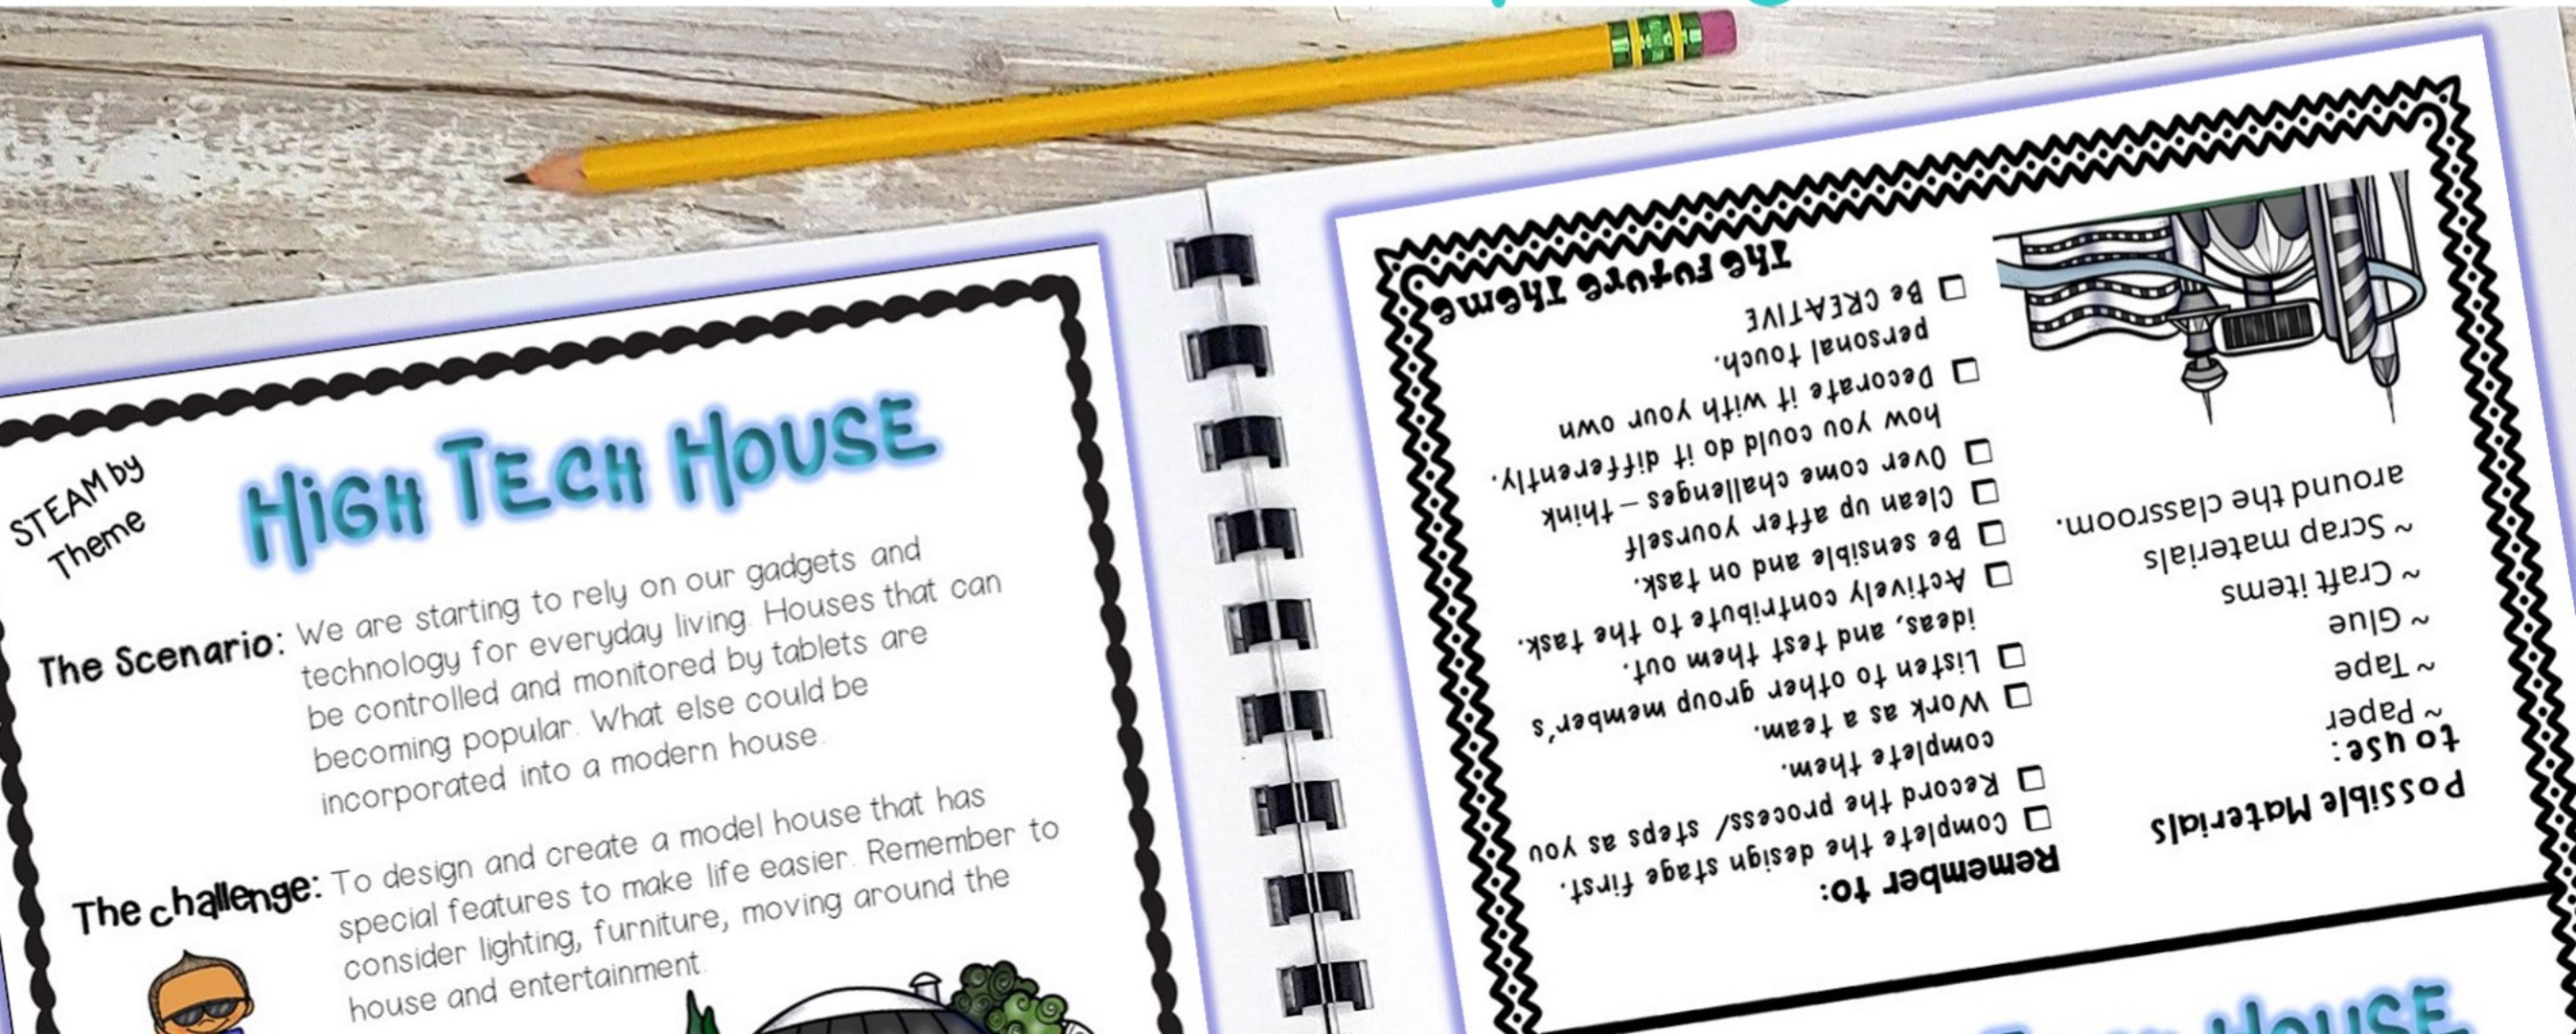 STEAM by
Theme
HIGH TECH HOUSE
The Scenario: We are starting to rely on our gadgets and
technology for everyday living. Houses that can
be controlled and monitored by tablets are
becoming popular. What else could be
incorporated into a modern house.
The challenge: To design and create a model house that has
special features to make life easier. Remember to
consider lighting, furniture, moving around the
house and entertainment.
Possible Materials
to use:
~ Paper
~ Tape
~ Glue
~ Craft items
~ Scrap materials
around the classroom.
Remember to:
Complete the design stage first.
Record the process/ steps as you
complete them.
Work as a team.
Listen to other group member's
ideas, and test them out.
Actively contribute to the task.
Be sensible and on task.
Clean up after yourself
Over come challenges – think
how you could do it differently.
Decorate it with your own
personal touch.
Be CREATIVE
The Future Theme
HOUSE